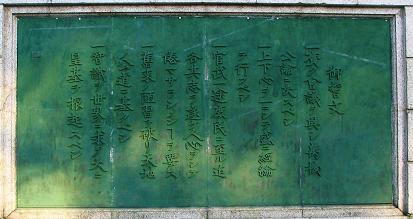 御誓文
一広く会議を興し万機
公論に決スヘシ
一上下心ヲ一ニシテ盛ニ経綸
ヲ行フヘシ
一官武一途庶民ニ至ル迄
各其志ヲ遂ケ人心ヲシテ
倦マサラシメンコトヲ要ス
一旧来ノ陋習ヲ破リ天地
ノ公道ニ基クヘシ
一智識ヲ世界ニ求メ大ニ
皇基ヲ振起スヘシ